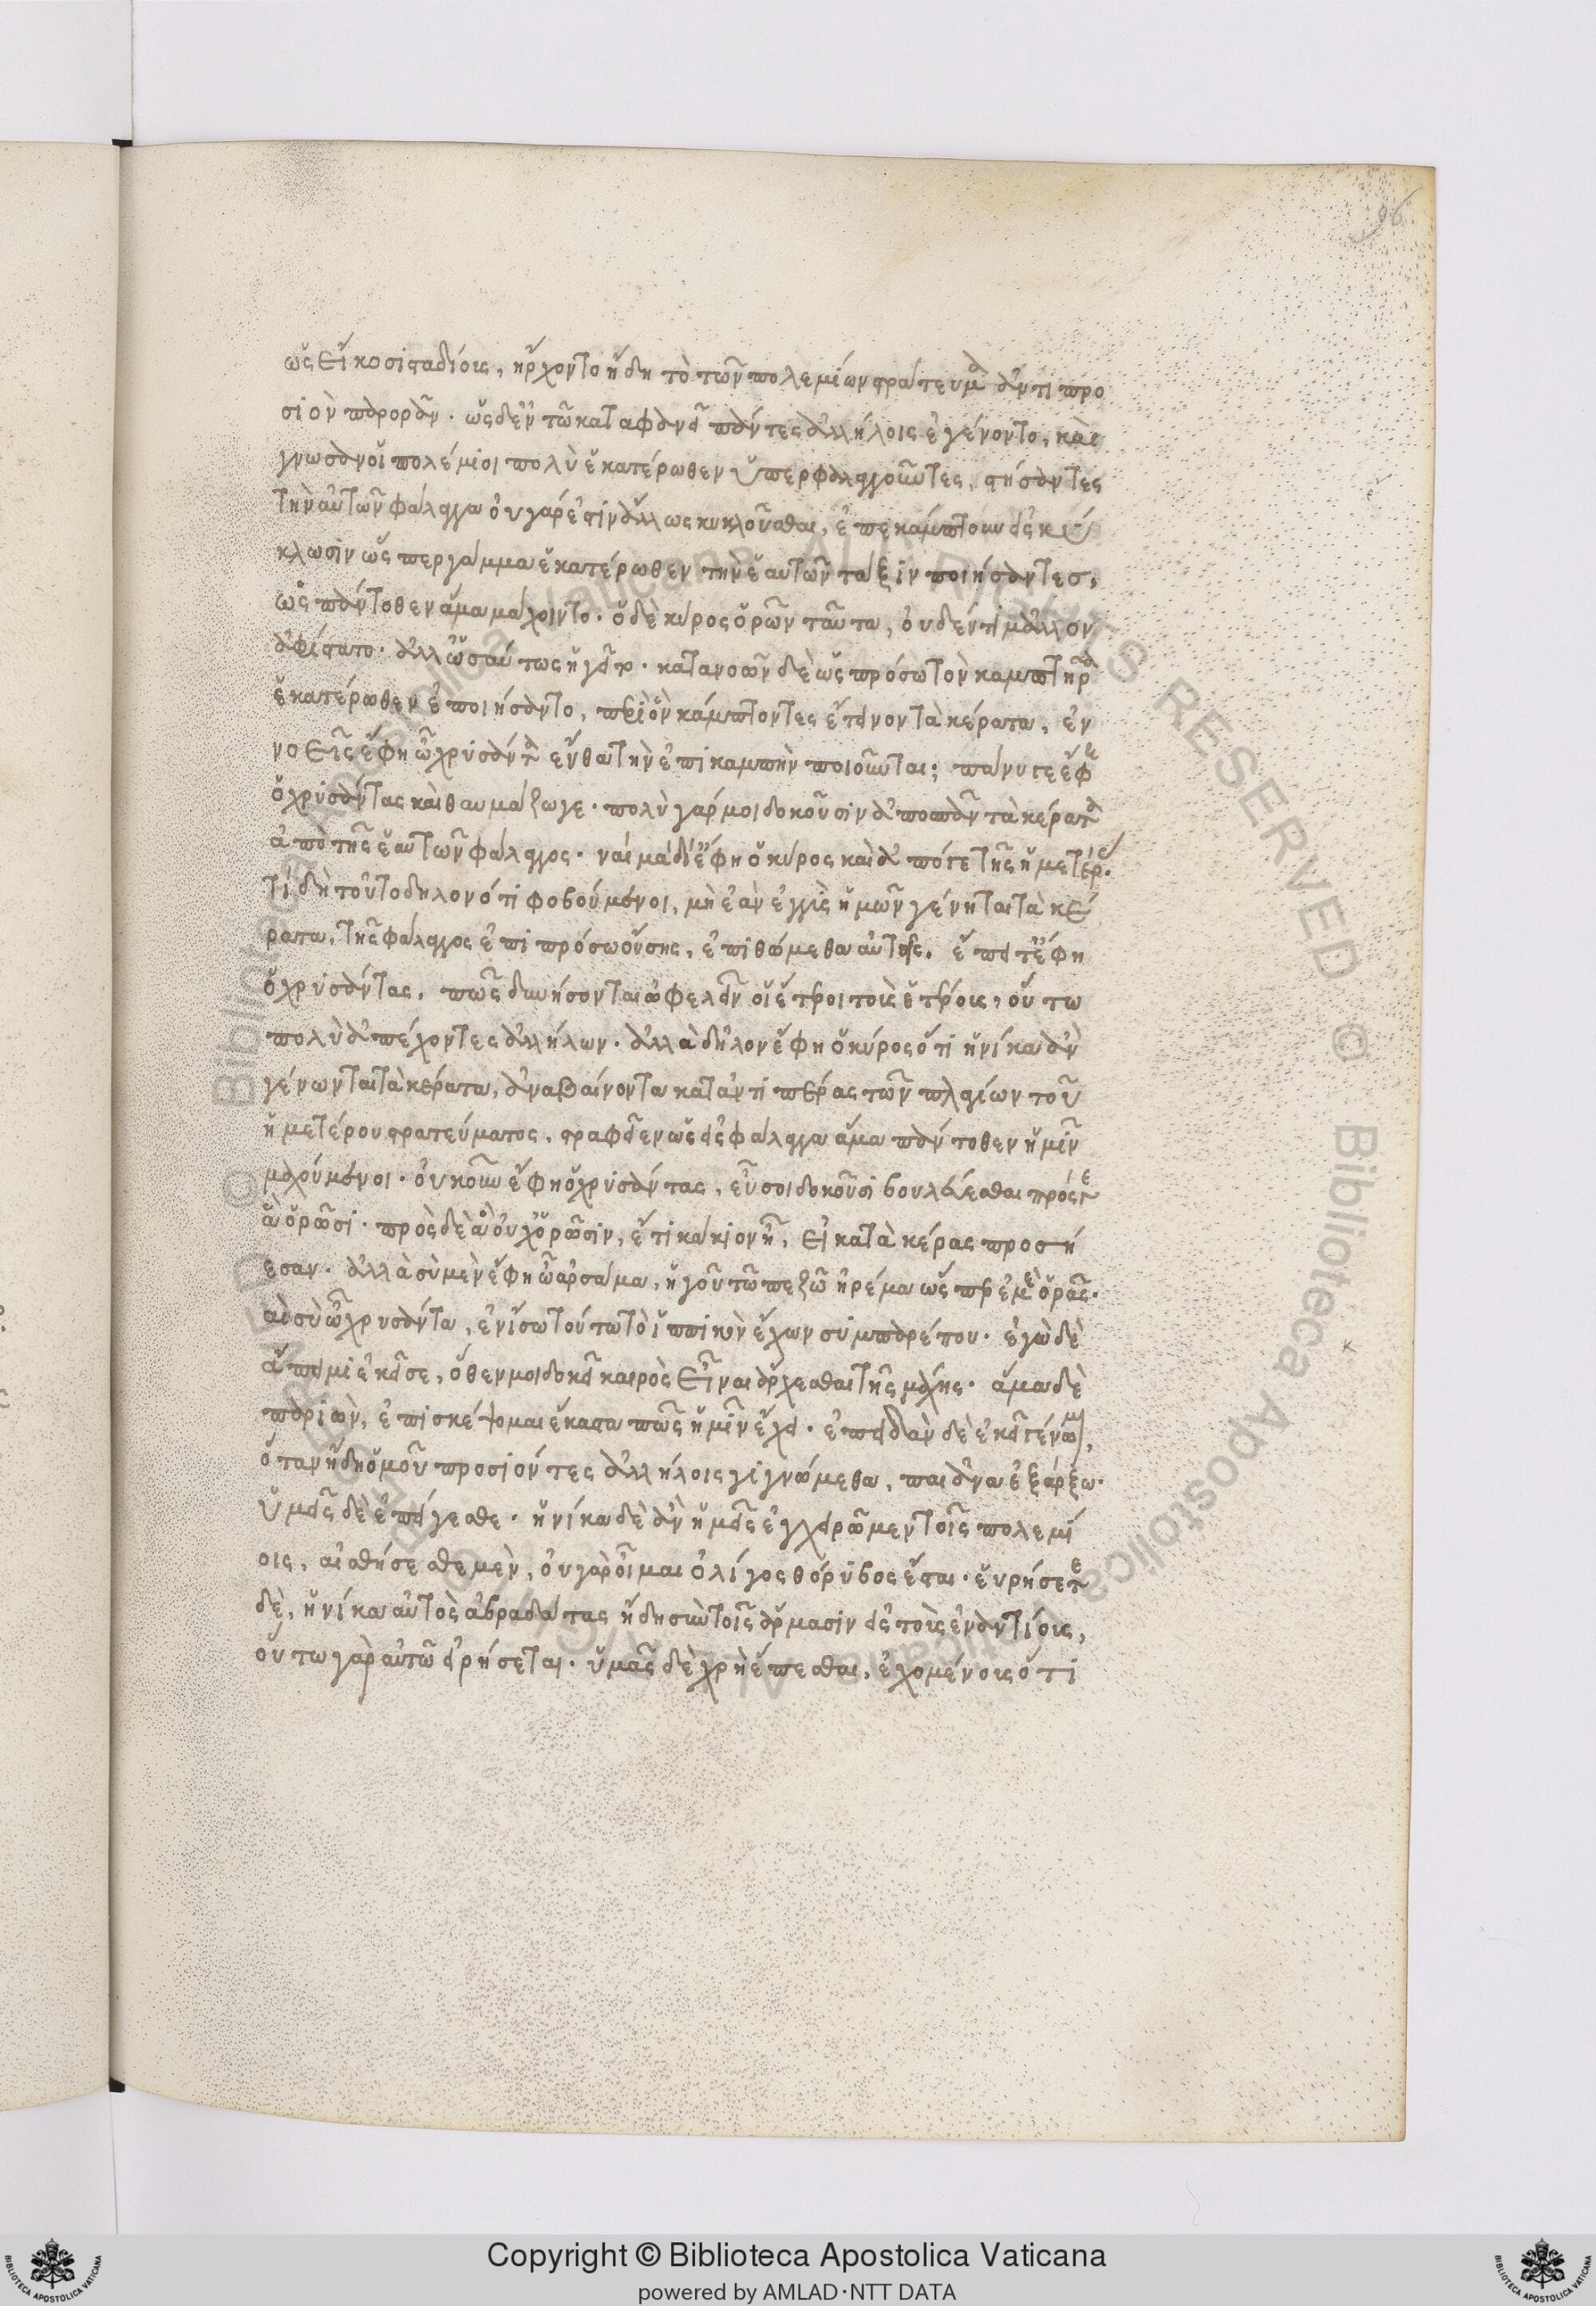 96
ὡς εἴκοσι σταδίοις, ἤρχοντο ἤδη τὸ τῶν πολεμίων στράτευμα ἀντιπρο
σιὸν παρορᾶν. ὡς δ' ἐν τῶ καταφανεῖ πάντες ἀλλήλοις ἐγένοντο, καὶ ἔ
γνωσαν οἱ πολέμιοι πολὺ ἑκατέρωθεν ὑπερφαλαγγοῦντες, στήσαντες
τὴν αὐτῶν φάλαγγα οὐ γάρ ἐστιν ἄλλως κυκλοῦσθαι, ἐπεκάμπτουν εἰς κύ
κλωσιν ὥσπερ γάμμα ἑκατέρωθεν τὴν ἑαυτῶν τάξιν ποιήσαντες,
ὡς πάντοθεν ἅμα μάχοιντο. ὁ δὲ κύρος ὁρῶν ταῦτα, οὐδέν τι μᾶλλον
ἀφίστατο. ἀλλ' ὡσαύτως ἡγεῖτο. κατανοῶν δὲ ὡς πρόσω τὸν καμπτῆρα
ἑκατέρωθεν ἐποιήσαντο, περὶ ὃν κάμπτοντες ἔτεινον τὰ κέρατα, ἐν
νοεῖς ἔφη ὦ χρύσαντα ἔνθα τὴν ἐπικαμπὴν ποιοῦνται; πάνυ γε ἔφη
ὁ χρύσαντας καὶ θαυμάζω γε. πολὺ γάρ μοι δοκοῦσιν ἀποσπᾶν τὰ κέρατα
ἀπὸ τῆς ἑαυτῶν φάλαγγος. ναὶ μὰ δί' ἔφη ὁ κύρος καὶ ἀπό γε τῆς ἡμετέρας.
τί δὴ τοῦτο δηλονότι φοβούμενοι, μὴ ἐὰν ἐγγὺς ἡμῶν γένηται τὰ κέ
ρατα, τῆς φάλαγγος ἔτι πρόσω οὔσης, ἐπιθώμεθα αὐτοῖς. ἔπειτ' ἔφη
ὁ χρύσαντας, πῶς δυνήσονται ὠφελεῖν οἱ ἕτεροι τοὺς ἑτέρους, οὕτω
πολὺ ἀπέχοντες ἀλλήλων. ἀλλὰ δῆλον ἔφη ὁ κύρος ὅτι ἡνίκα ἂν
γένωνται τὰ κέρατα, ἀναβαίνοντα καταντιπέρας τῶν πλαγίων τοῦ
ἡμετέρου στρατεύματος, στραφέντες ὡς εἰς φάλαγγα ἅμα πάντοθεν ἡμῖν
μαχούμενοι. οὐκοῦν ἔφη ὁ χρύσαντας, εὖ σοι δοκοῦσι βουλεύεσθαι πρός γε
ἃ ὁρῶσι. πρὸς δὲ ἃ οὐχ ὁρῶσιν, ἔτι κάκιον ἢ, εἰ κατὰ κέρας προσῄ
εσαν. ἀλλὰ σὺ μὲν ἔφη ὦ ἀρσάμα, ἡγοῦ τῶ πεζῶ ἠρέμα ὥσπερ ἐμὲ ὁρᾶς.
καὶ σὺ ὦ χρυσάντα, ἐν ἴσω τούτω τὸ ἱππικὸν ἔχων συμπαρέπου. ἐγὼ δὲ
ἄπειμι ἐκεῖσε, ὅθεν μοι δοκεῖ καιρὸς εἶναι ἄρχεσθαι τῆς μάχης. ἅμα δὲ
παριὼν, ἐπισκέψομαι ἕκαστα πῶς ἡμῖν ἔχει. ἐπειδὰν δὲ ἐκεῖ γένωμαι,
ὅταν ἤδη ὁμοῦ προσιόντες ἀλλήλοις γιγνώμεθα, παιᾶνα ἐξάρξω.
ὑμεῖς δὲ ἐπείγεσθε. ἡνίκα δὲ ἂν ἡμεῖς ἐγχειρῶμεν τοῖς πολεμί
οις, αἰσθήσεσθε μὲν, οὐ γὰρ οἶμαι ὀλίγος θόρυβος ἔσται. εὑρήσετε
δὲ, ἡνίκα αὐτὸς ἀβραδάτας ἤδη σὺν τοῖς ἅρμασιν εἰς τοὺς ἐναντίους,
οὕτω γὰρ αὐτῶ εἰρήσεται. ὑμᾶς δὲ χρὴ ἕπεσθαι, ἐχομένους ὅτι